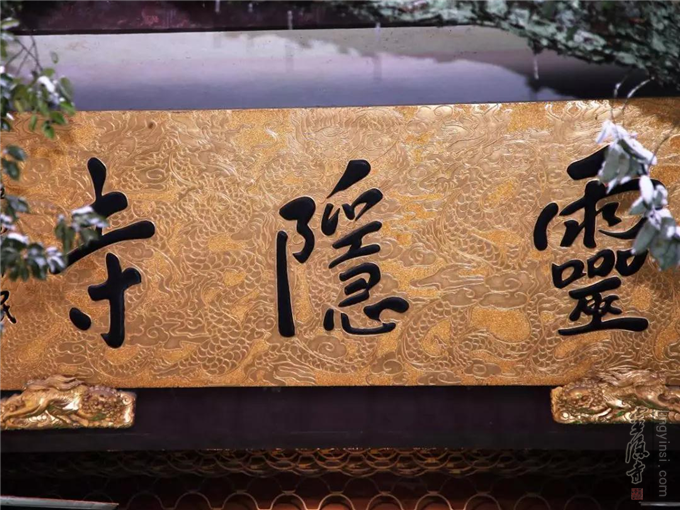 靈隱寺
lingyinsi.com
靈隱寺